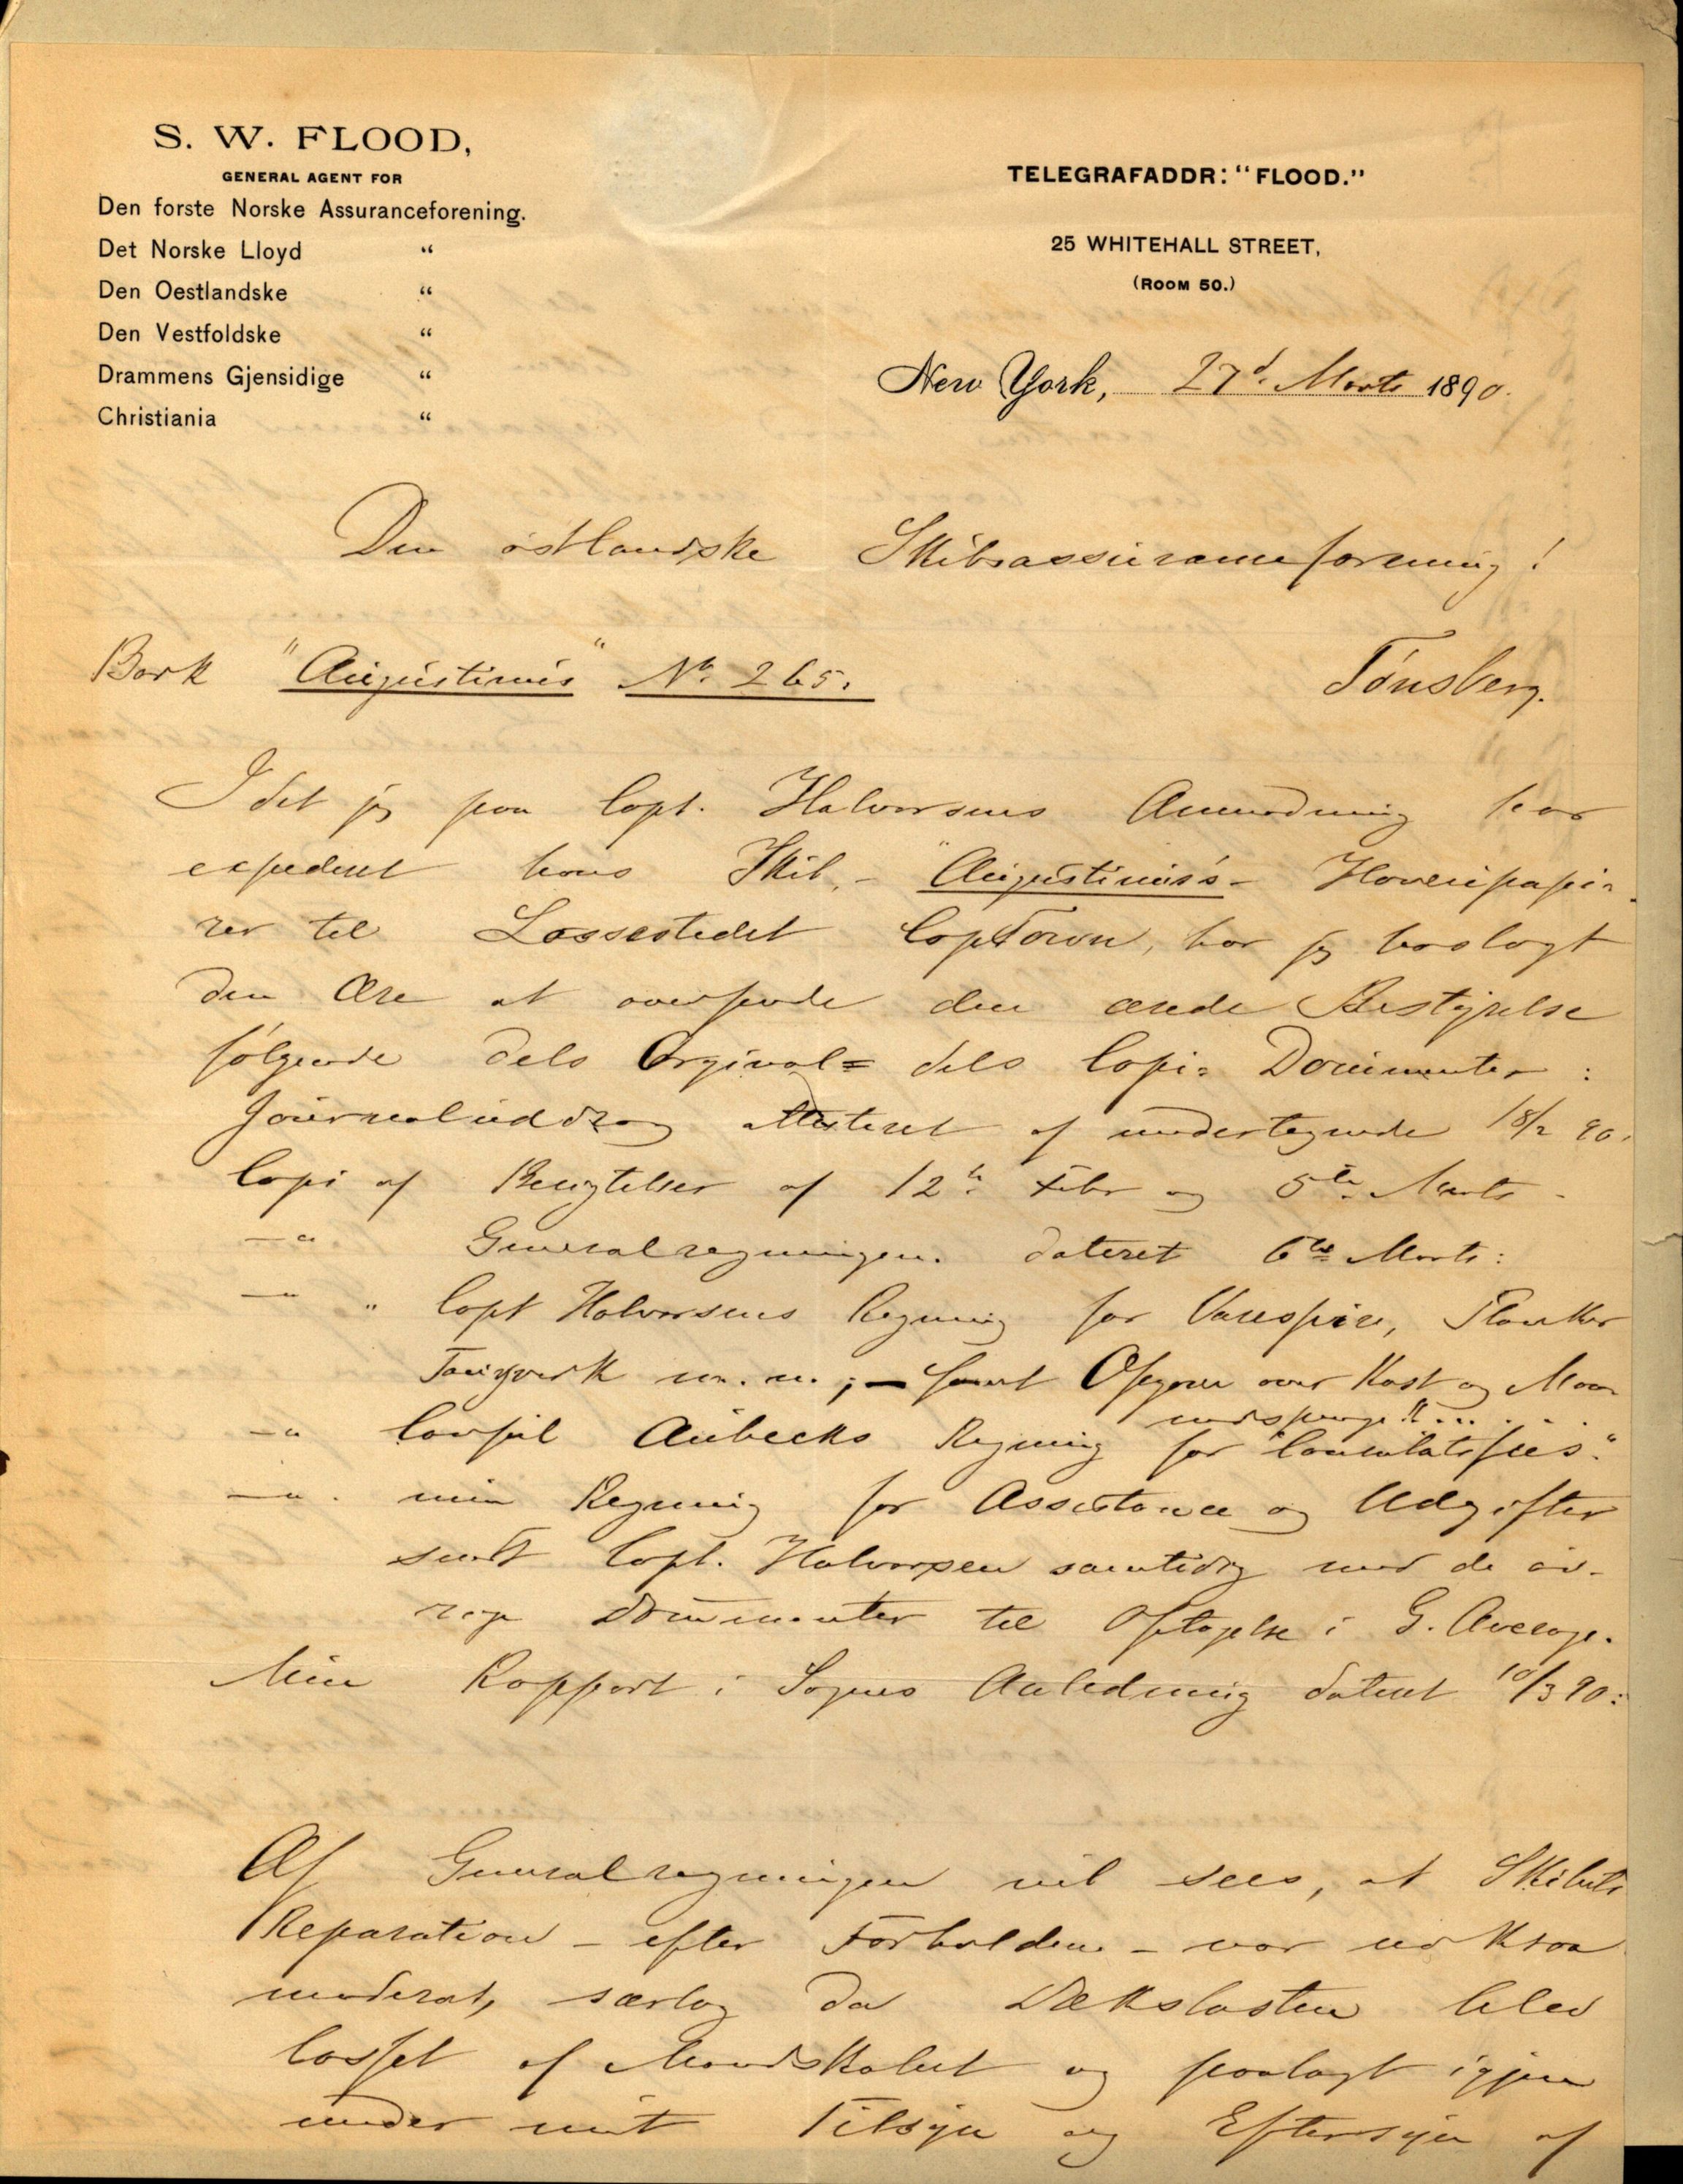 S. W. FLOOD,
GENERAL AGENT FOR
Den forste Norske Assuranceforening.
Det Norske Lloyd "
Den Oestlandske "
Den Vestfoldske "
Drammens Gjensidige "
Christiania "
TELEGRAFADDR: "FLOOD."
25 WHITEHALL STREET,
(ROOM 50.)
New York, 27d. Marts 1890.
Den østlandske Skibsassuranceforening!
Bark "Augustinus" No. 265.
Tønsberg.
Idet jeg paa Capt. Halvorsens Anmodning har
expederet hans Skib, - "Augustinus's - Havaripapi-
rer til Lossestedet CapTown, har jeg hoslagt
den Ære at oversende den ærede Bestyrelse
følgende dels Orginal= dels Copi= Documenter :
Journaluddrag attesteret af undertegnede 18/2 90.
Copi af Besigtelser af 12te Febr og 5te Marts -
—"— Generalregningen dateret 6te Marts:
—"— " Capt Halvorsens Regning for Varespirer, Planker
Taugverk m.m.; - samt Opgave over Kost og Maa-
nedspenge
—"— Consul Aubecks Regning for "Consulatsfees".
—"— min Regning for Assistance og Udgifter
sendt Capt. Halvorsen samtidig med de øv-
rige Documenter til Optagelse i G. Average.
Min Rapport i Sagens Anledning dateret 10/3 90:
Af Generalregningen vil sees, at Skibets
Reparation - efter Forholdene - var
moderat, særlig da Dækslasten blev
losset af Mandskabet og paalagt igjen
under mit Tilsyn og Eftersyn af